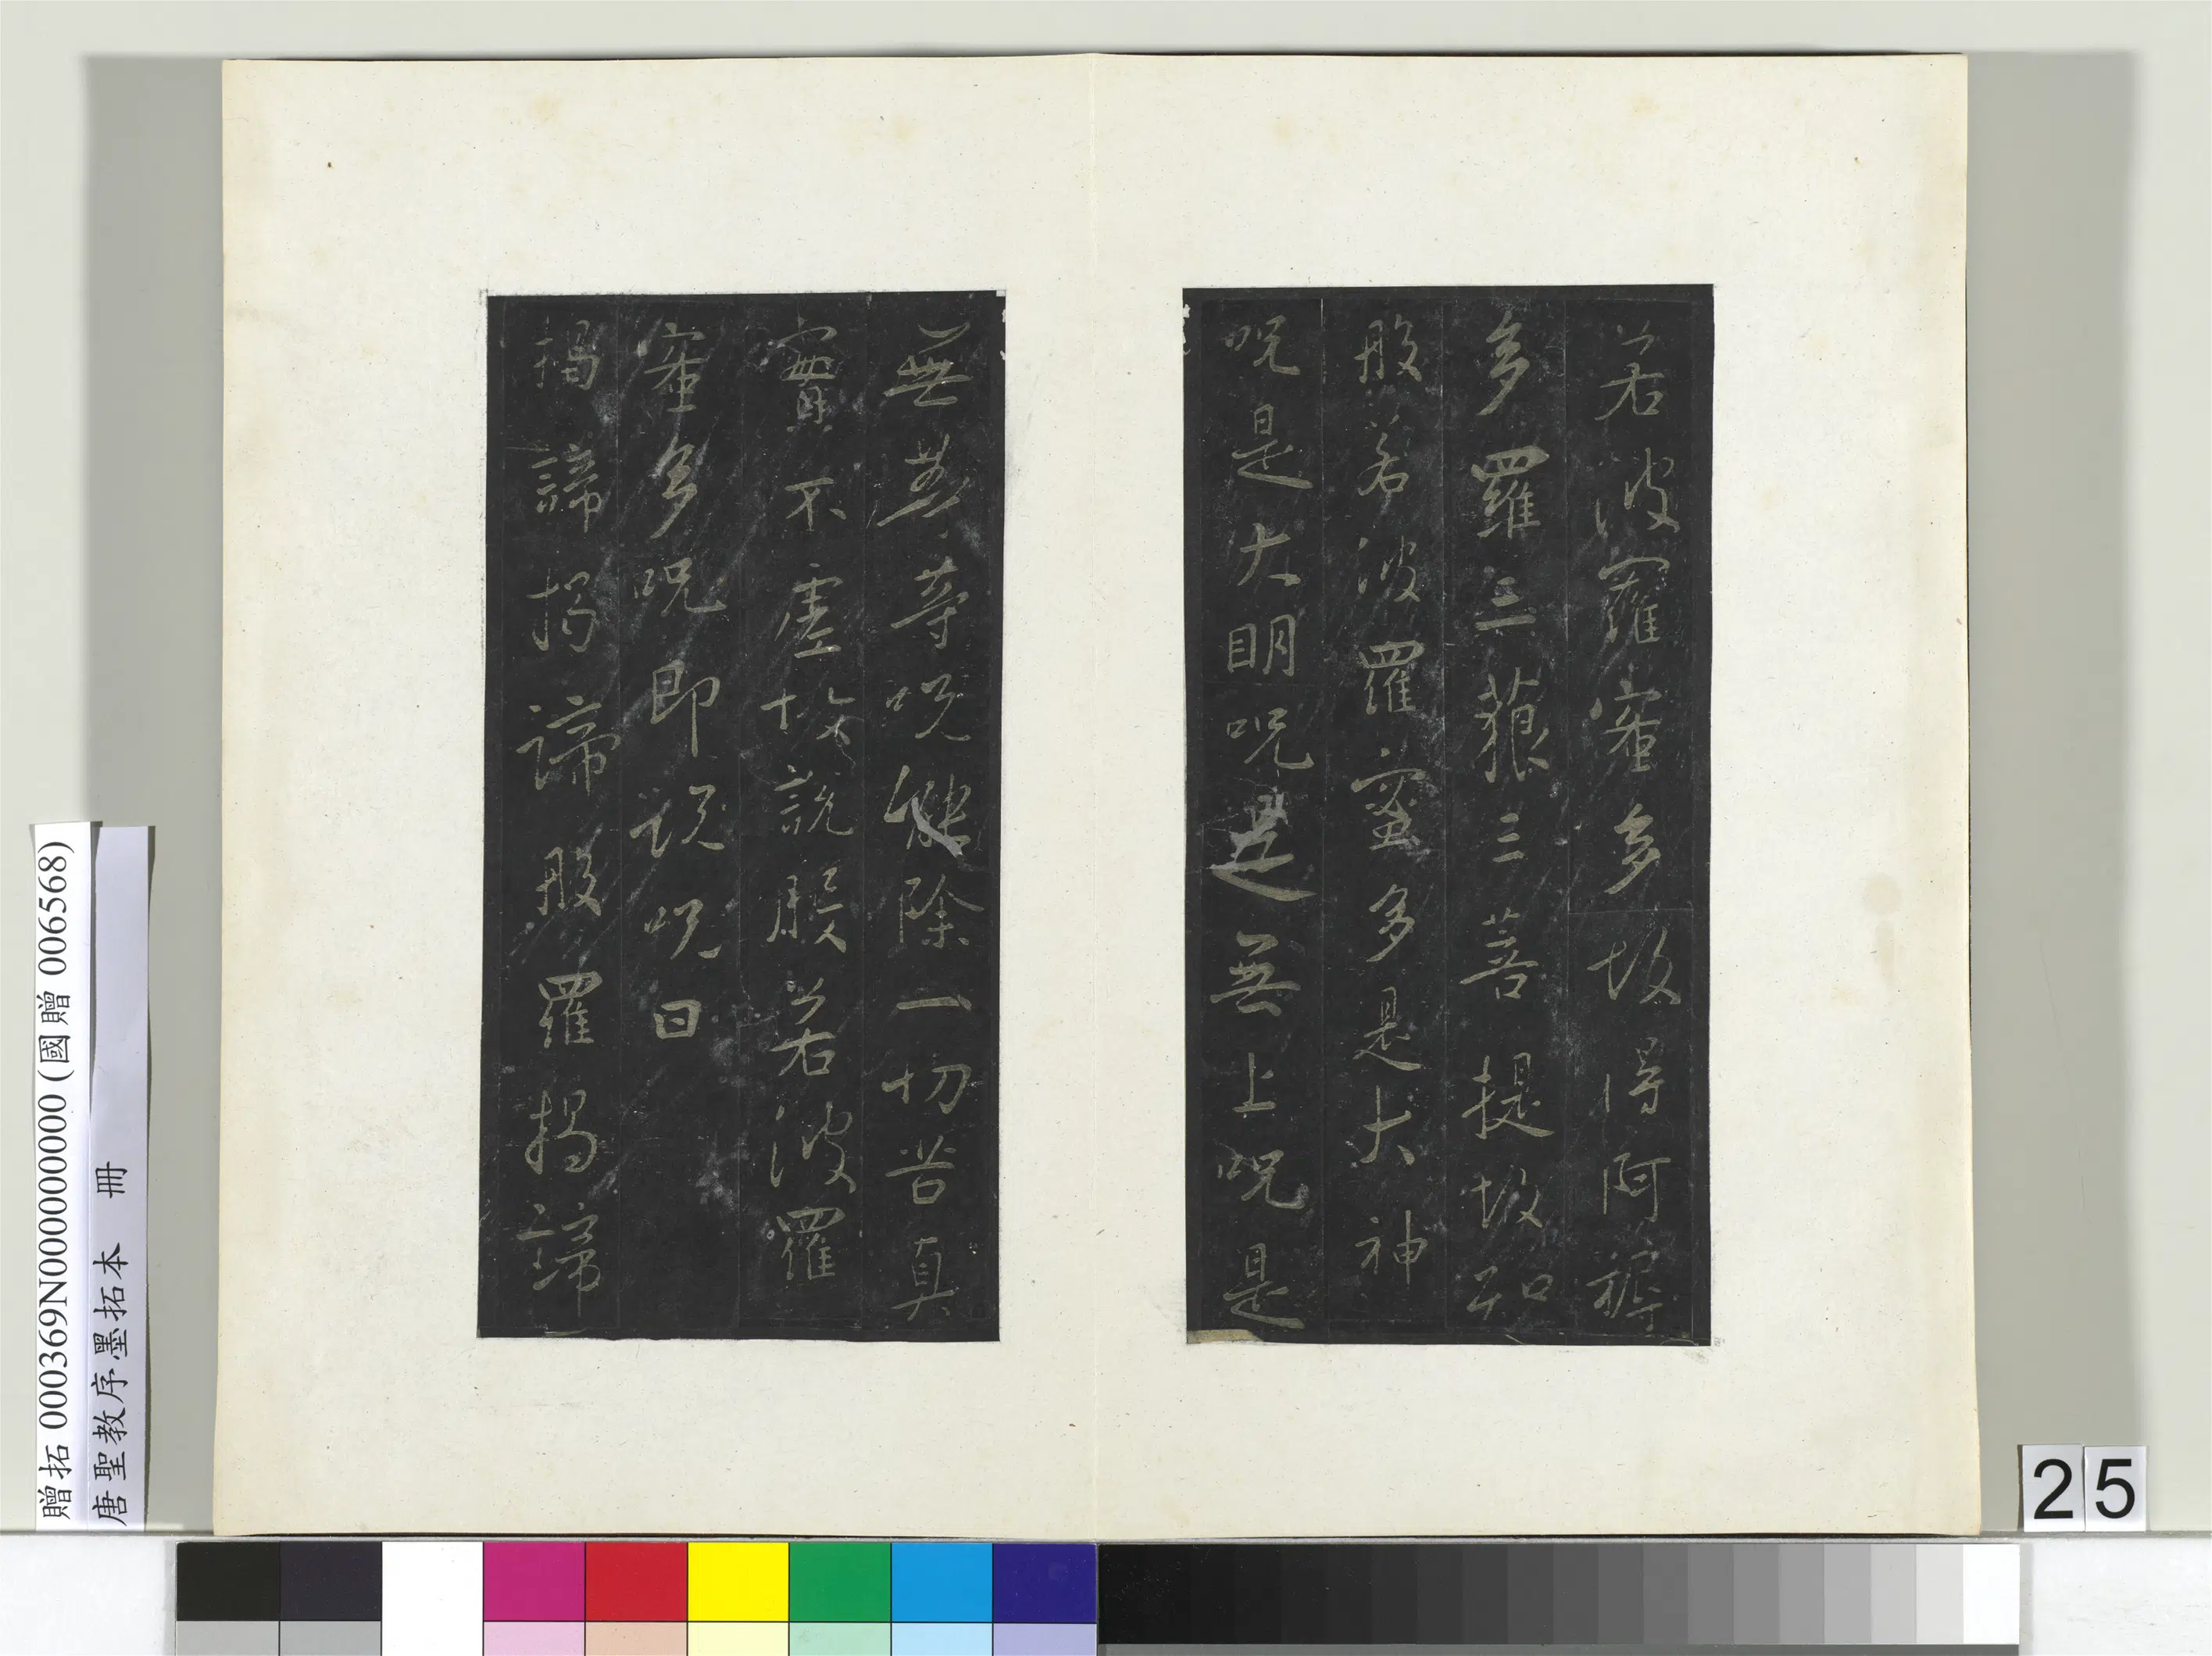 若波羅蜜多故得阿耨
多羅三藐三菩提故知
般若波羅蜜多是大神
呪是大明呪是無上呪是
無等等呪能除一切苦真
實不虛故說般若波羅
蜜多呪即說呪曰
揭諦揭諦 般羅揭諦
贈拓 000369N000000000 (國贈 006568)
唐聖教序墨拓本 冊
25